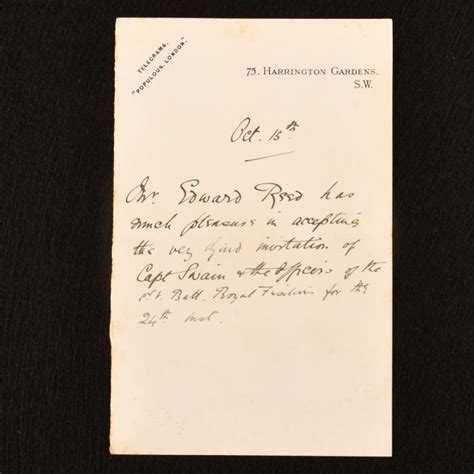 TELEGRAMS,
"POPULOUS, LONDON."
75, HARRINGTON GARDENS,
S.W.
Oct. 15th.
Mr. Edward Reed has
much pleasure in accepting
the very kind invitation of
Capt Swain & the Officers of the
1st. Batt. Royal Fusiliers for the
24th inst.